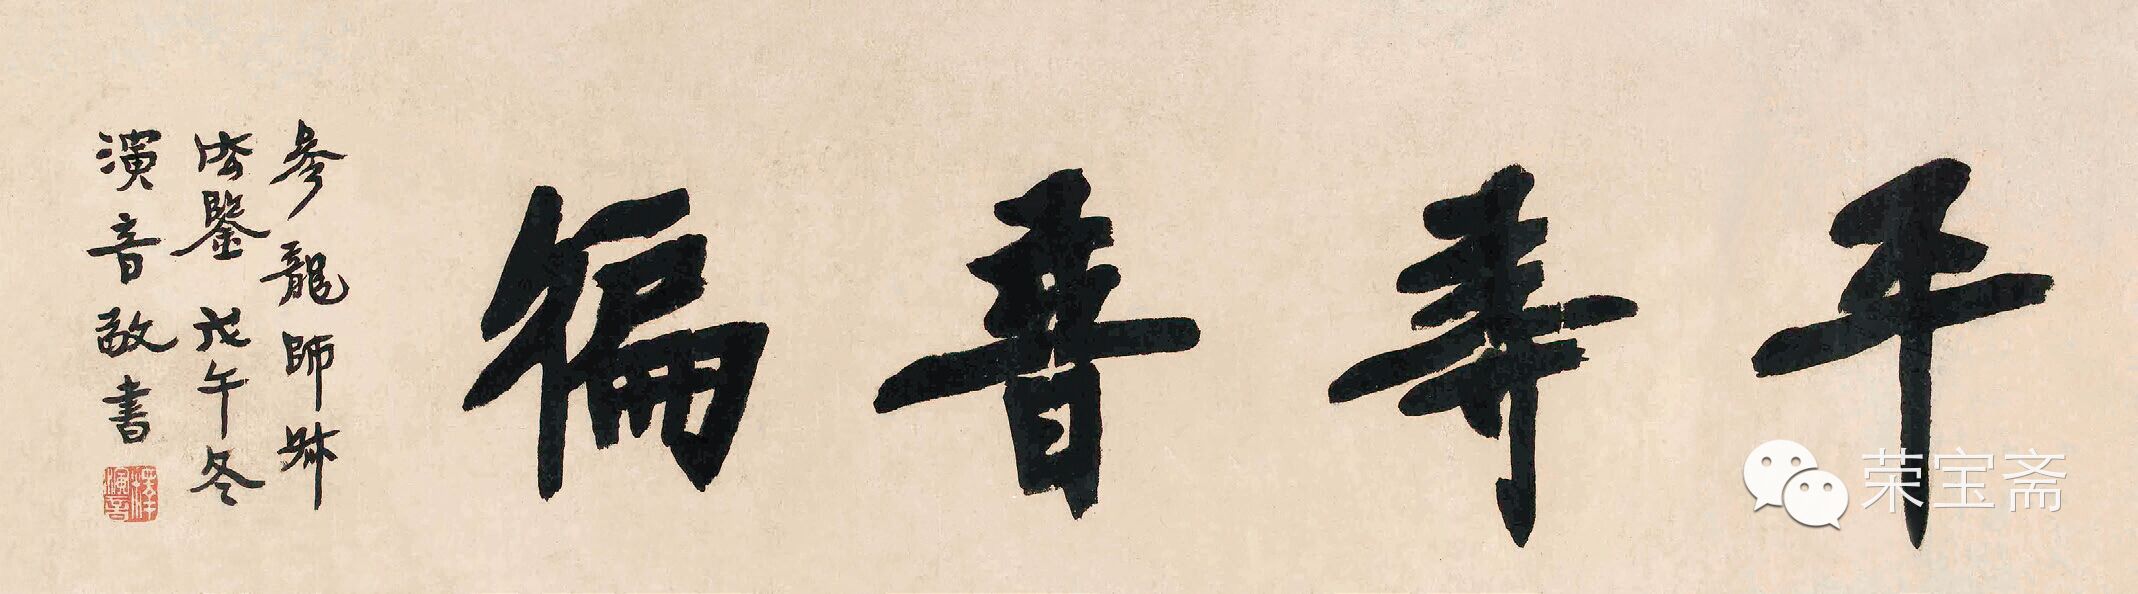 平等普徧
參龍師姊
法鑒 戊午冬
演音敬書
荣宝斋